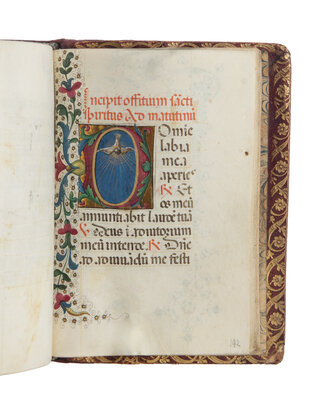 Incipit offitium sancti
spiritus Ad matutinũ
Omie
labia
mea
aperies
R Et
os meũ
annuntiabit laudẽ tuã
Deus i adiutorium
meũ intende. R Dñe
ad adiuuãdũ me festi
142